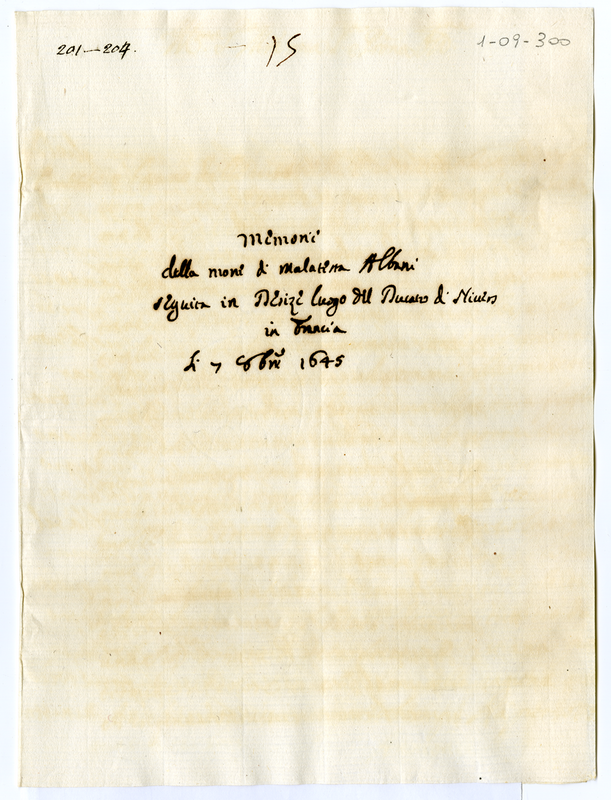 201–204.
15
1-09-300
Memorie
della morte di Malatesta Albani
seguita in Desize luogo del Ducato di Nivers
in Francia
li 7 8bre 1645